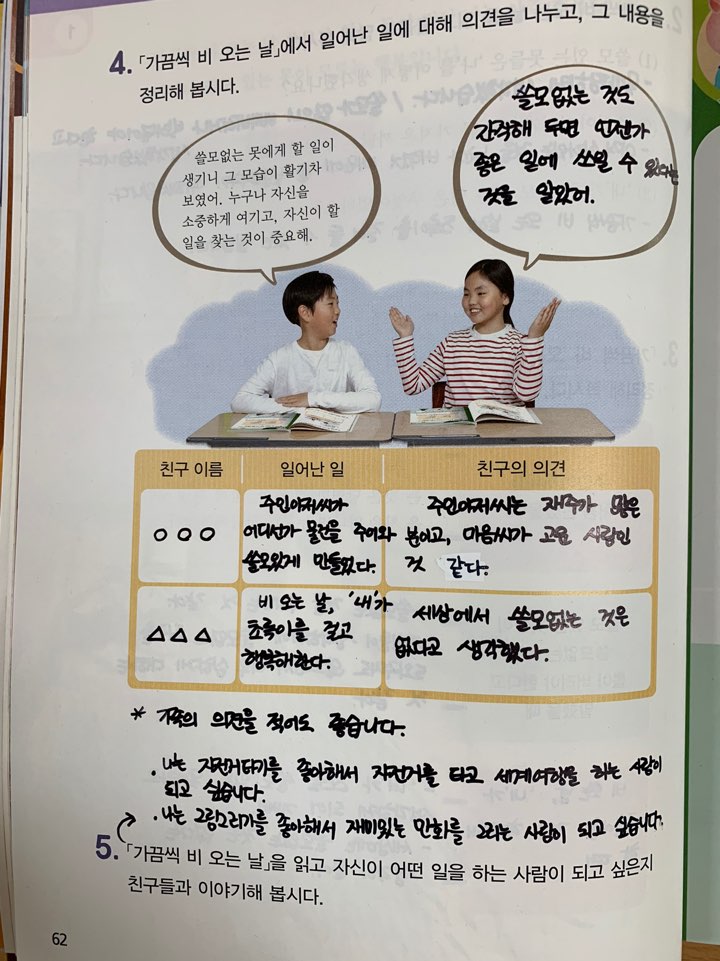 4. 「가끔씩 비 오는 날」에서 일어난 일에 대해 의견을 나누고, 그 내용을
정리해 봅시다.
쓸모없는 못에게 할 일이
생기니 그 모습이 활기차
보였어. 누구나 자신을
소중하게 여기고, 자신이 할
일을 찾는 것이 중요해.
쓸모없는 것도
간직해 두면 언젠가
좋은 일에 쓰일 수 있다는
것을 알았어.
친구 이름 일어난 일 친구의 의견
○○○
주인아저씨가
어디선가 물건을 주어와
쓸모있게 만들었다.
주인아저씨는 재주가 많은
분이고, 마음씨가 고운 사람인
것 같다.
△△△
비 오는 날, '내'가
초록이를 걸고
행복해한다.
세상에서 쓸모없는 것은
없다고 생각했다.
* 가족의 의견을 적어도 좋습니다.
· 나는 자전거타기를 좋아해서 자전거를 타고 세계여행을 하는 사람이
되고 싶습니다.
· 나는 그림그리기를 좋아해서 재미있는 만화를 그리는 사람이 되고 싶습니다.
5. 「가끔씩 비 오는 날」을 읽고 자신이 어떤 일을 하는 사람이 되고 싶은지
친구들과 이야기해 봅시다.
62